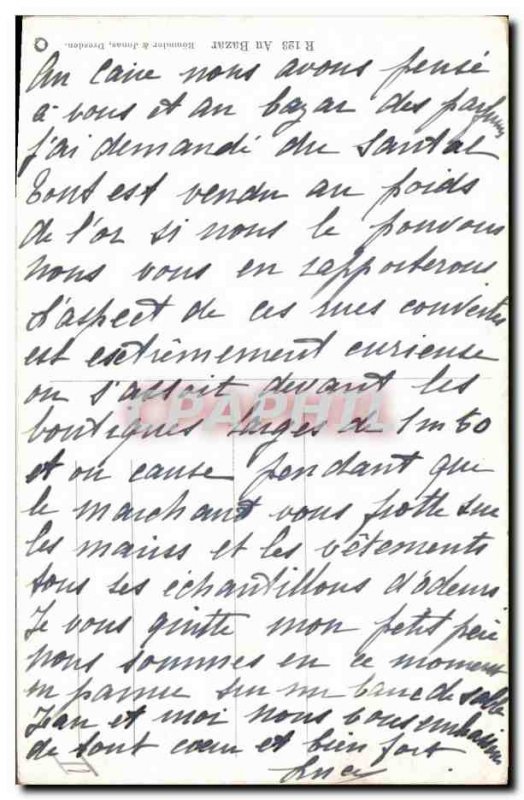 R 123 Au Bazar Römmler & Jonas, Dresden.
Au Caire nous avons pensé
à vous et au bazar des parfums
j'ai demandé du Santal
Tout est vendu au poids
de l'or si nous le pouvons
nous vous en rapporterons
L'aspect de ces rues couvertes
est extrêmement curieuse
on s'assoit devant les
boutiques larges de 1m60
et on cause pendant que
le marchant vous frotte sur
les mains et les vêtements
tous ses échantillons d'odeurs
Je vous quitte mon petit père
nous sommes en ce moment
en panne sur un banc de sable
Jean et moi nous vous embrassons
de tout cœur et bien fort
Lucy
CPAPHIL